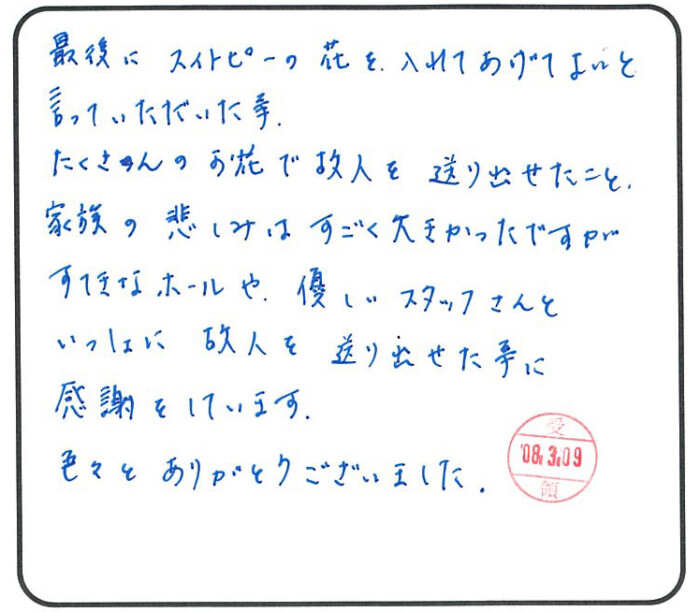 最後に スイトピーの 花を、入れてあげて下さいと
言っていただいた事.
たくさんの お花で 故人を 送り出せたこと、
家族の 悲しみは すごく大きかったですが
すてきなホールや、優しいスタッフさんと
いっしょに 故人を 送り出せた事に
感謝をしています.
色々と ありがとうございました.
受
'08.3.09
領